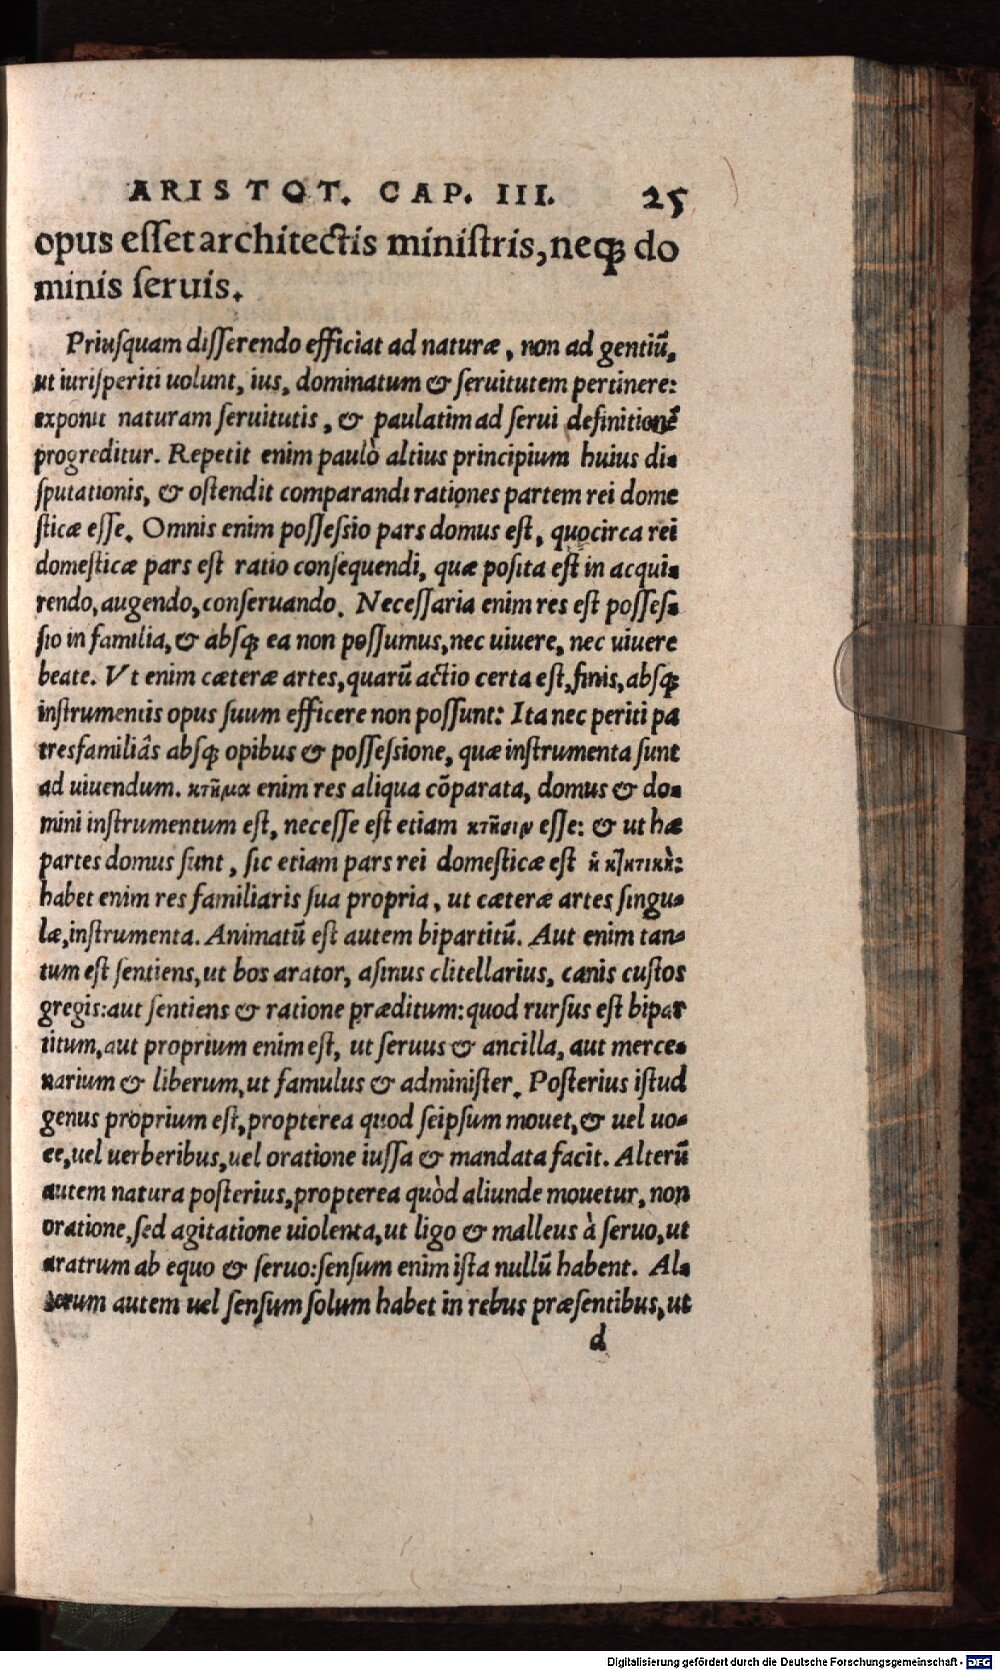 ARISTOT. CAP. III. 25
opus esset architectis ministris, neqꝫ do
minis seruis.
Priusquam disserendo efficiat ad naturæ, non ad gentiũ,
ut iurisperiti uolunt, ius, dominatum & seruitutem pertinere:
exponit naturam seruitutis, & paulatim ad serui definitionẽ
progreditur. Repetit enim paulò altius principium huius di-
sputationis, & ostendit comparandi rationes partem rei dome
sticæ esse. Omnis enim possessio pars domus est, quocirca rei
domesticæ pars est ratio consequendi, quæ posita est in acqui-
rendo, augendo, conseruando. Necessaria enim res est posses-
sio in familia, & absqꝫ ea non possumus, nec uiuere, nec uiuere
beate. Vt enim cæteræ artes, quarũ actio certa est, finis, absqꝫ
instrumentis opus suum efficere non possunt: Ita nec periti pa
tresfamiliâs absqꝫ opibus & possessione, quæ instrumenta sunt
ad uiuendum. κτῆμα enim res aliqua cõparata, domus & do-
mini instrumentum est, necesse est etiam κτῆσιν esse: & ut hæ
partes domus sunt, sic etiam pars rei domesticæ est ἡ κτητικὴ:
habet enim res familiaris sua propria, ut cæteræ artes singu-
læ, instrumenta. Animatũ est autem bipartitũ. Aut enim tan-
tum est sentiens, ut bos arator, asinus clitellarius, canis custos
gregis: aut sentiens & ratione præditum: quod rursus est bipar
titum, aut proprium enim est, ut seruus & ancilla, aut merce-
narium & liberum, ut famulus & administer. Posterius istud
genus proprium est, propterea quod seipsum mouet, & uel uo-
ce, uel uerberibus, uel oratione iussa & mandata facit. Alterũ
autem natura posterius, propterea quòd aliunde mouetur, non
oratione, sed agitatione uiolenta, ut ligo & malleus à seruo, ut
aratrum ab equo & seruo: sensum enim ista nullũ habent. Al-
terum autem uel sensum solum habet in rebus præsentibus, ut
d
Digitalisierung gefördert durch die Deutsche Forschungsgemeinschaft - DFG